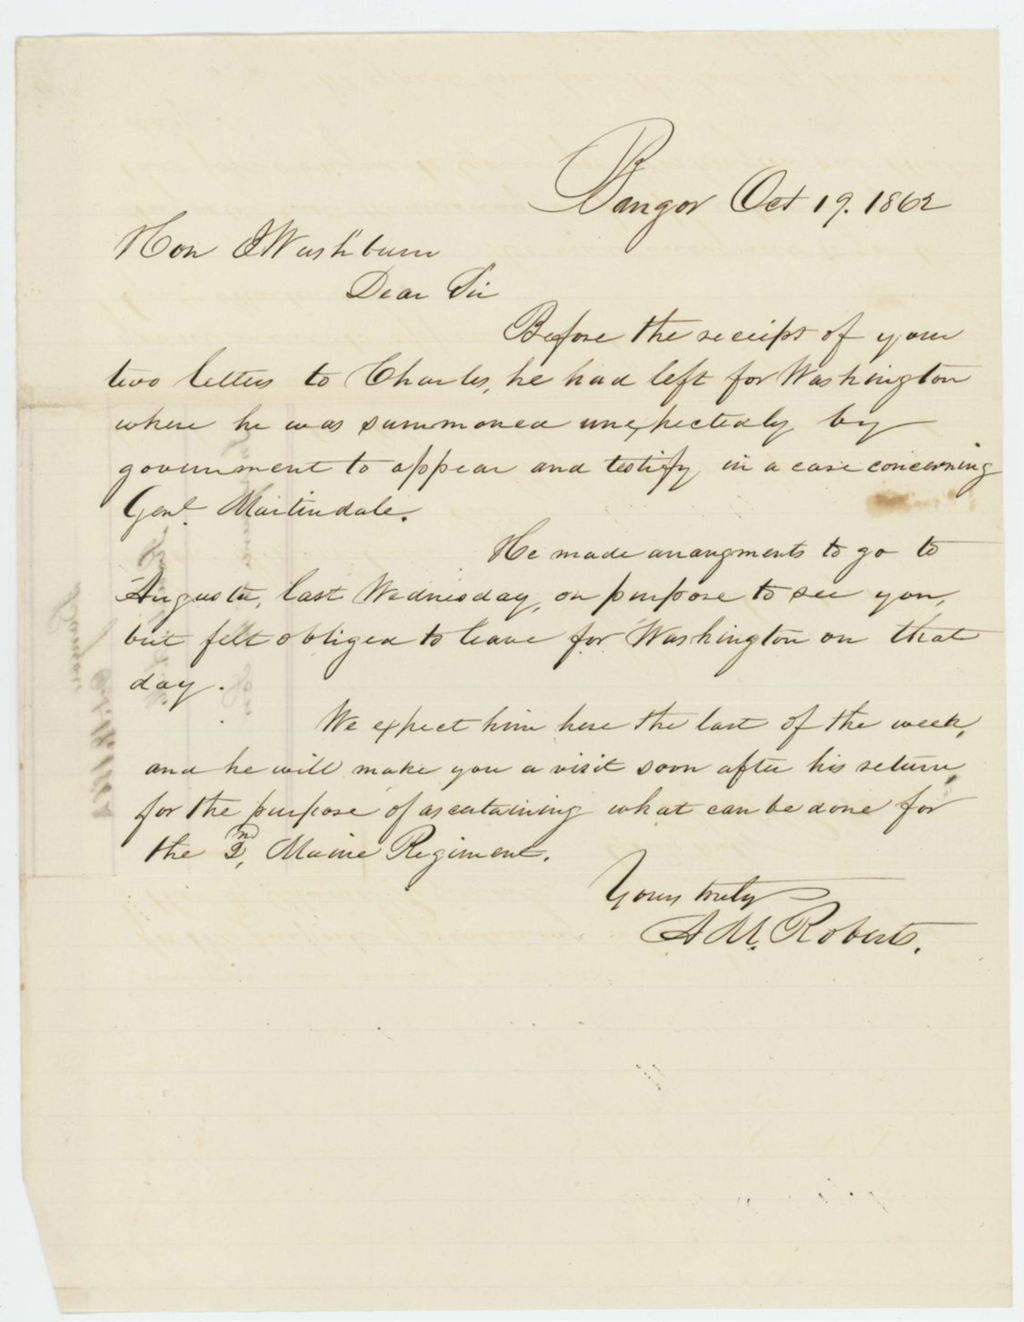 Bangor Oct 19. 1862
Hon I Washburn
Dear Sir
Before the receipt of your
two letters to Charles, he had left for Washington
where he was summoned unexpectedly by
government to appear and testify in a case concerning
Genl. Martindale.
He made arrangments to go to
Augusta, last Wednesday, on purpose to see you,
but felt obliged to leave for Washington on that
day.
We expect him here the last of the week,
and he will make you a visit soon after his return,
for the purpose of ascertaining what can be done for
the 2nd, Maine Regiment.
Yours truly
A M. Roberts.